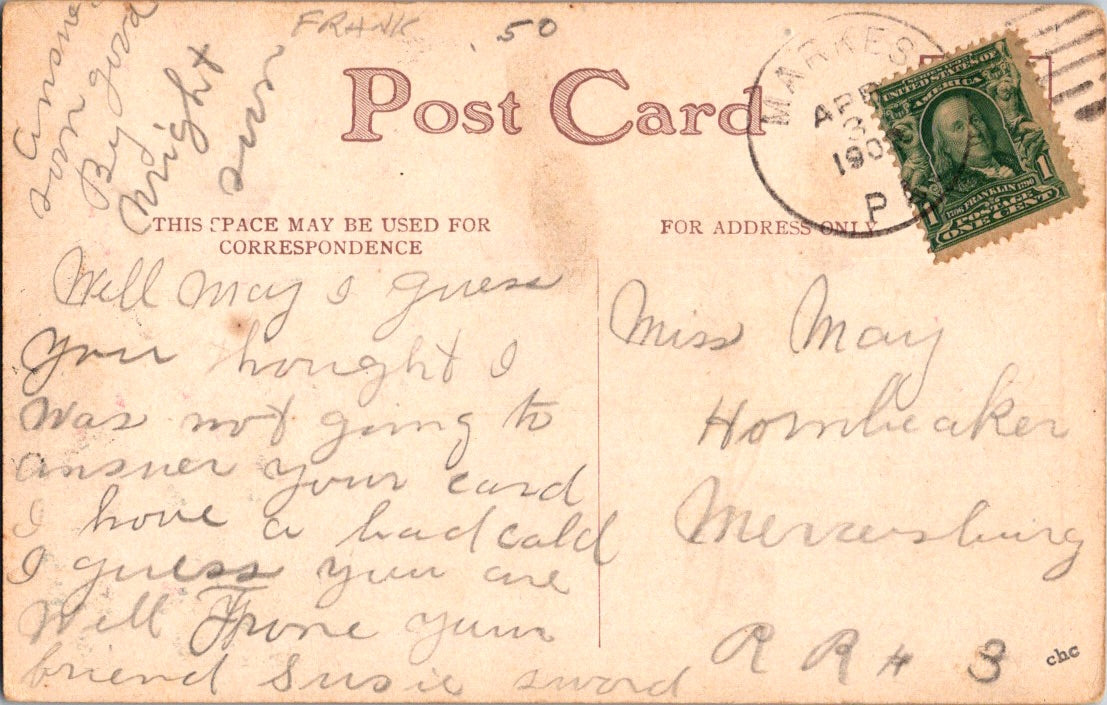 FRANK .50
Post Card
THIS SPACE MAY BE USED FOR
CORRESPONDENCE
FOR ADDRESS ONLY
MARKES
APR
3
190
PA.
UNITED STATES OF
AMERICA
1706 FRANKLIN 1790
POSTAGE
ONE CENT
1
1
answer
soon
By good
night
Well May I guess
you thought I
was not going to
answer your card
I have a bad cold
I guess you are
Well
friend Susie sword
Miss May
Hornbeaker
Mercersburg
R R # 3
chc